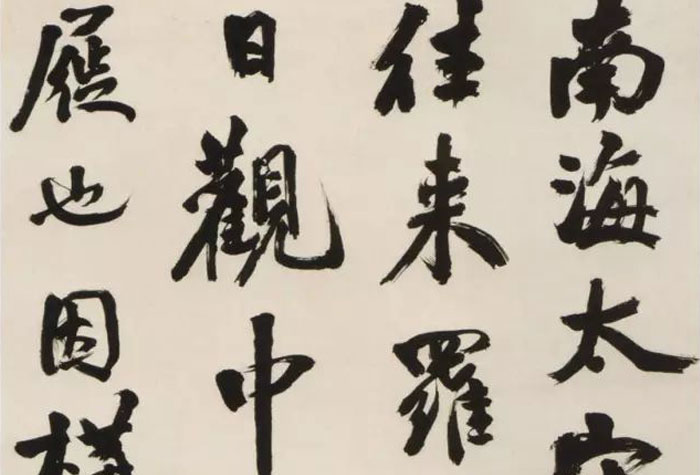 南海太
往来羅
日觀中
也因